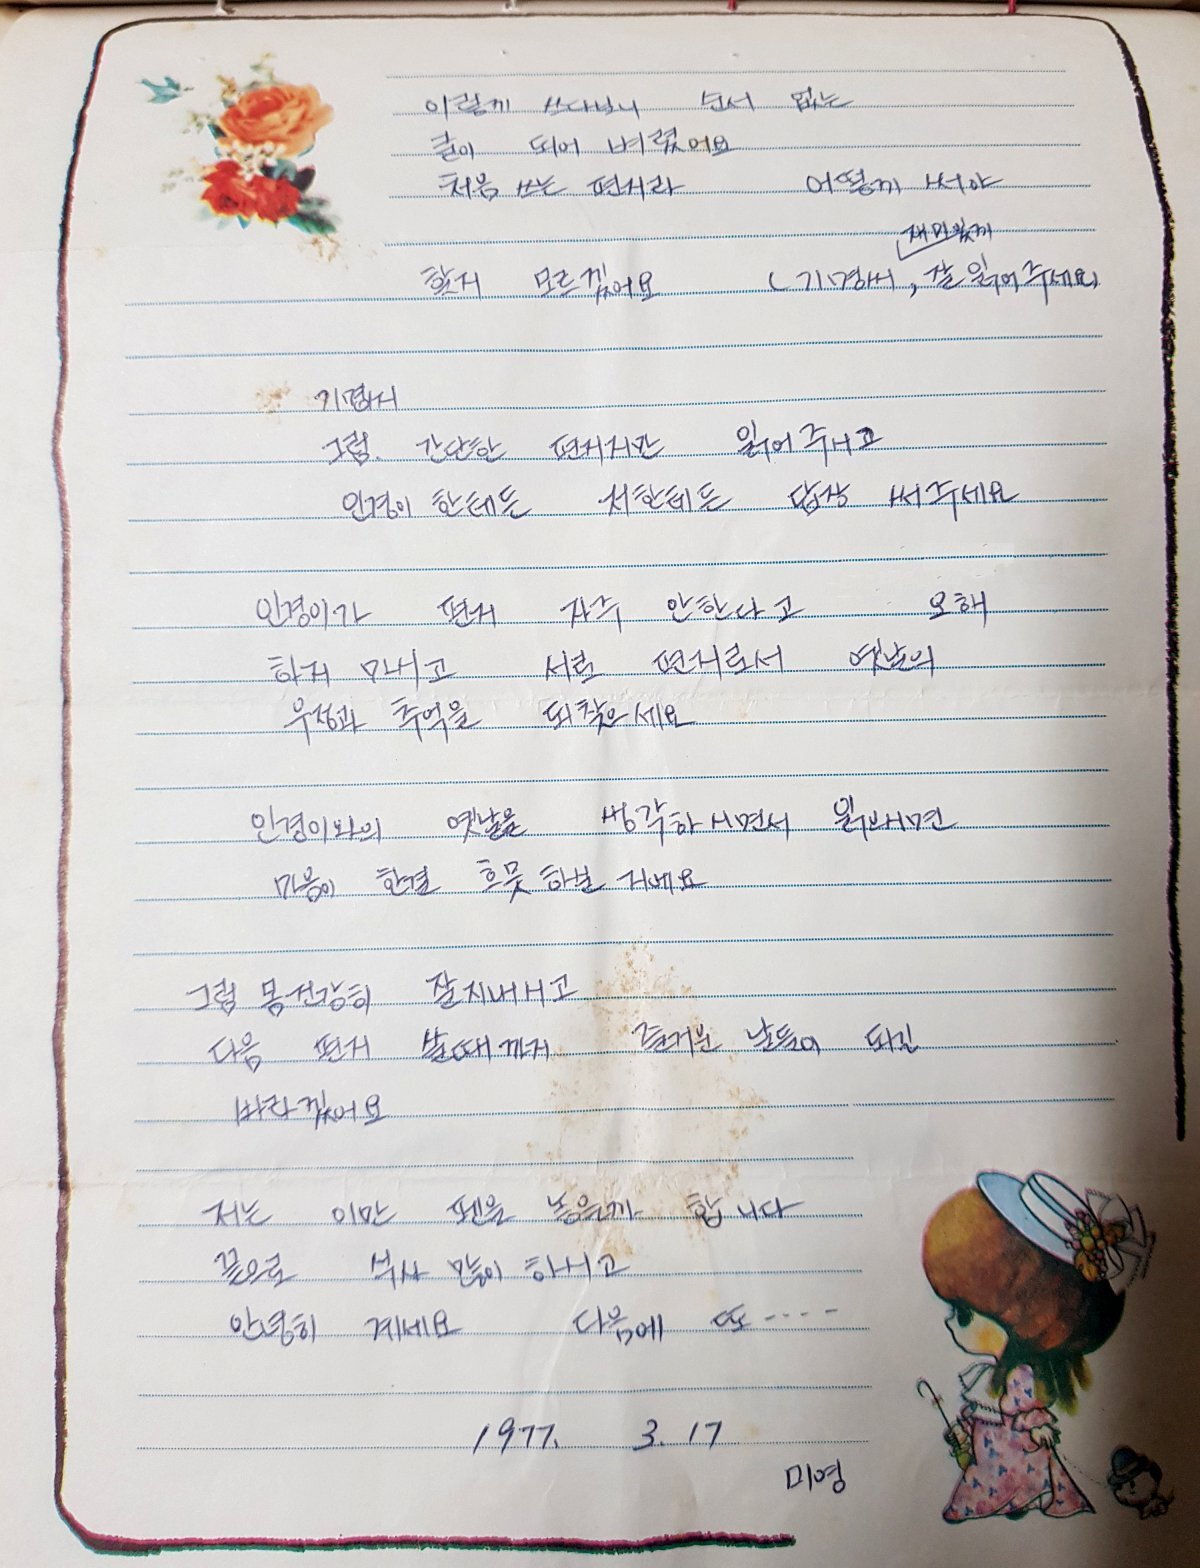 이렇게 쓰다보니 순서 없는
글이 되어 버렸어요
처음 쓰는 편지라 어떻게 써야
재미있게
할지 모르겠어요 (기명씨, 잘 읽어주세요)
기명씨
그럼. 간단한 편지지만 읽어주시고
인경이 한테든 저한테든 답장 써주세요
인경이가 편지 자주 안한다고 오해
하지 마시고 서로 편지로서 옛날의
우정과 추억을 되찾으세요
인경이와의 옛날을 생각하시면서 읽으시면
마음이 한결 흐뭇하실 거예요
그럼 몸건강히 잘지내시고
다음 편지 쓸때까지 즐거운 날들이 되길
바라겠어요
저는 이만 펜을 놓을까 합니다
끝으로 부사 많이 하시고
안녕히 계세요 다음에 또----
1977. 3. 17
미영